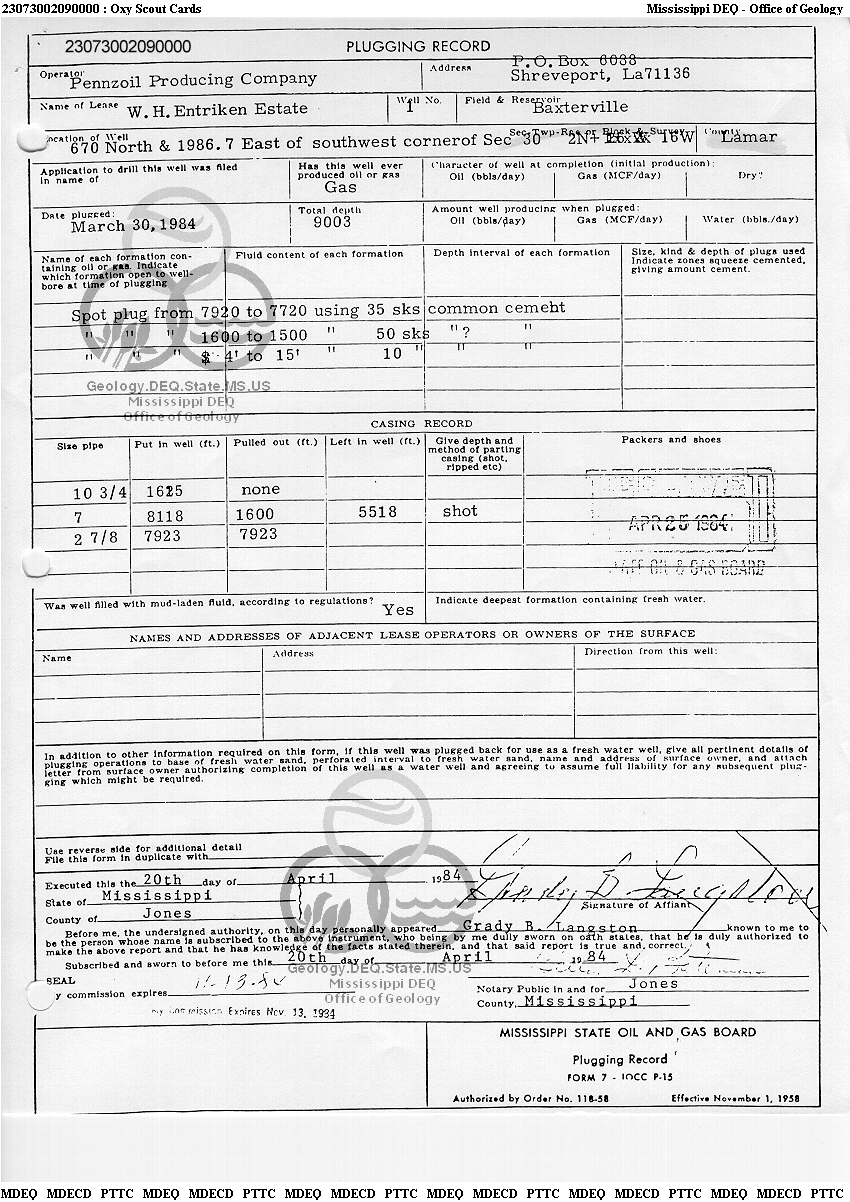 23073002090000 : Oxy Scout Cards
Mississippi DEQ - Office of Geology
23073002090000
PLUGGING RECORD
Operator
Pennzoil Producing Company
Address
P.O. Box 6038
Shreveport, La71136
Name of Lease W.H. Entriken Estate
Well No. 1
Field & Reservoir
Baxterville
Location of Well
670 North & 1986.7 East of southwest cornerof Sec 30 2N+ 16W
County
Lamar
Application to drill this well was filed
in name of
Has this well ever
produced oil or gas
Gas
Character of well at completion (initial production):
Oil (bbls/day) Gas (MCF/day) Dry?
Date plugged:
March 30, 1984
Total depth
9003
Amount well producing when plugged:
Oil (bbls/day) Gas (MCF/day) Water (bbls./day)
Name of each formation con-
taining oil or gas. Indicate
which formation open to well-
bore at time of plugging
Fluid content of each formation
Depth interval of each formation
Size, kind & depth of plugs used
Indicate zones squeeze cemented,
giving amount cement.
Spot plug from 7920 to 7720 using 35 sks common cement
" " " 1600 to 1500 " 50 sks "? "
" " " 4' to 15' " 10 " " "
Geology.DEQ.State.MS.US
Mississippi DEQ
Office of Geology
CASING RECORD
Size pipe
Put in well (ft.)
Pulled out (ft.)
Left in well (ft.)
Give depth and
method of parting
casing (shot,
ripped etc)
Packers and shoes
10 3/4 1625 none
7 8118 1600 5518 shot
2 7/8 7923 7923
APR 25 1984
OIL & GAS BOARD
Was well filled with mud-laden fluid, according to regulations? Yes
Indicate deepest formation containing fresh water.
NAMES AND ADDRESSES OF ADJACENT LEASE OPERATORS OR OWNERS OF THE SURFACE
Name
Address
Direction from this well:
In addition to other information required on this form, if this well was plugged back for use as a fresh water well, give all pertinent details of
plugging operations to base of fresh water sand, perforated interval to fresh water sand, name and address of surface owner, and attach
letter from surface owner authorizing completion of this well as a water well and agreeing to assume full liability for any subsequent plug-
ging which might be required.
Use reverse side for additional detail
File this form in duplicate with
Executed this the 20th day of April, 1984
State of Mississippi
County of Jones
Signature of Affiant
Before me, the undersigned authority, on this day personally appeared Grady B. Langston known to me to
be the person whose name is subscribed to the above instrument, who being by me dully sworn on oath states, that he is duly authorized to
make the above report and that he has knowledge of the facts stated therein, and that said report is true and correct.
Subscribed and sworn to before me this 20th day of April 1984
Geology.DEQ.State.MS.US
Mississippi DEQ
Office of Geology
SEAL
y commission expires 11-13-84
My Commission Expires Nov. 13, 1984
Notary Public in and for Jones
County, Mississippi
MISSISSIPPI STATE OIL AND GAS BOARD
Plugging Record
FORM 7 - IOCC P-15
Authorized by Order No. 118-58
Effective November 1, 1958
MDEQ MDECD PTTC MDEQ MDECD PTTC MDEQ MDECD PTTC MDEQ MDECD PTTC MDEQ MDECD PTTC MDEQ MDECD PTTC